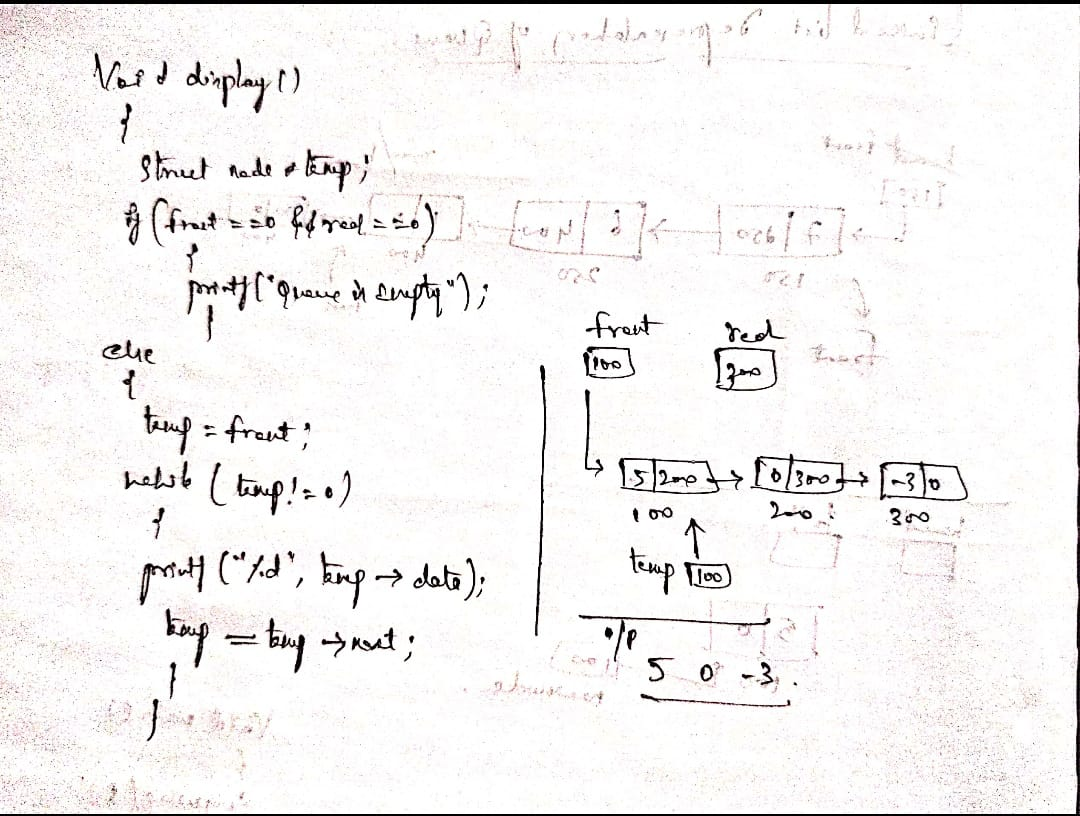 Void display()
{
struct node * temp;
if (front == 0 && real == 0)
{
printf("Queue is empty");
}
else
{
temp = front;
while (temp != 0)
{
printf ("%d", temp → data);
temp = temp → next;
}
}
front real
100 300
5 200 → 0 300 → -3 0
100 200 300
temp 100
o/p
5 0 -3.